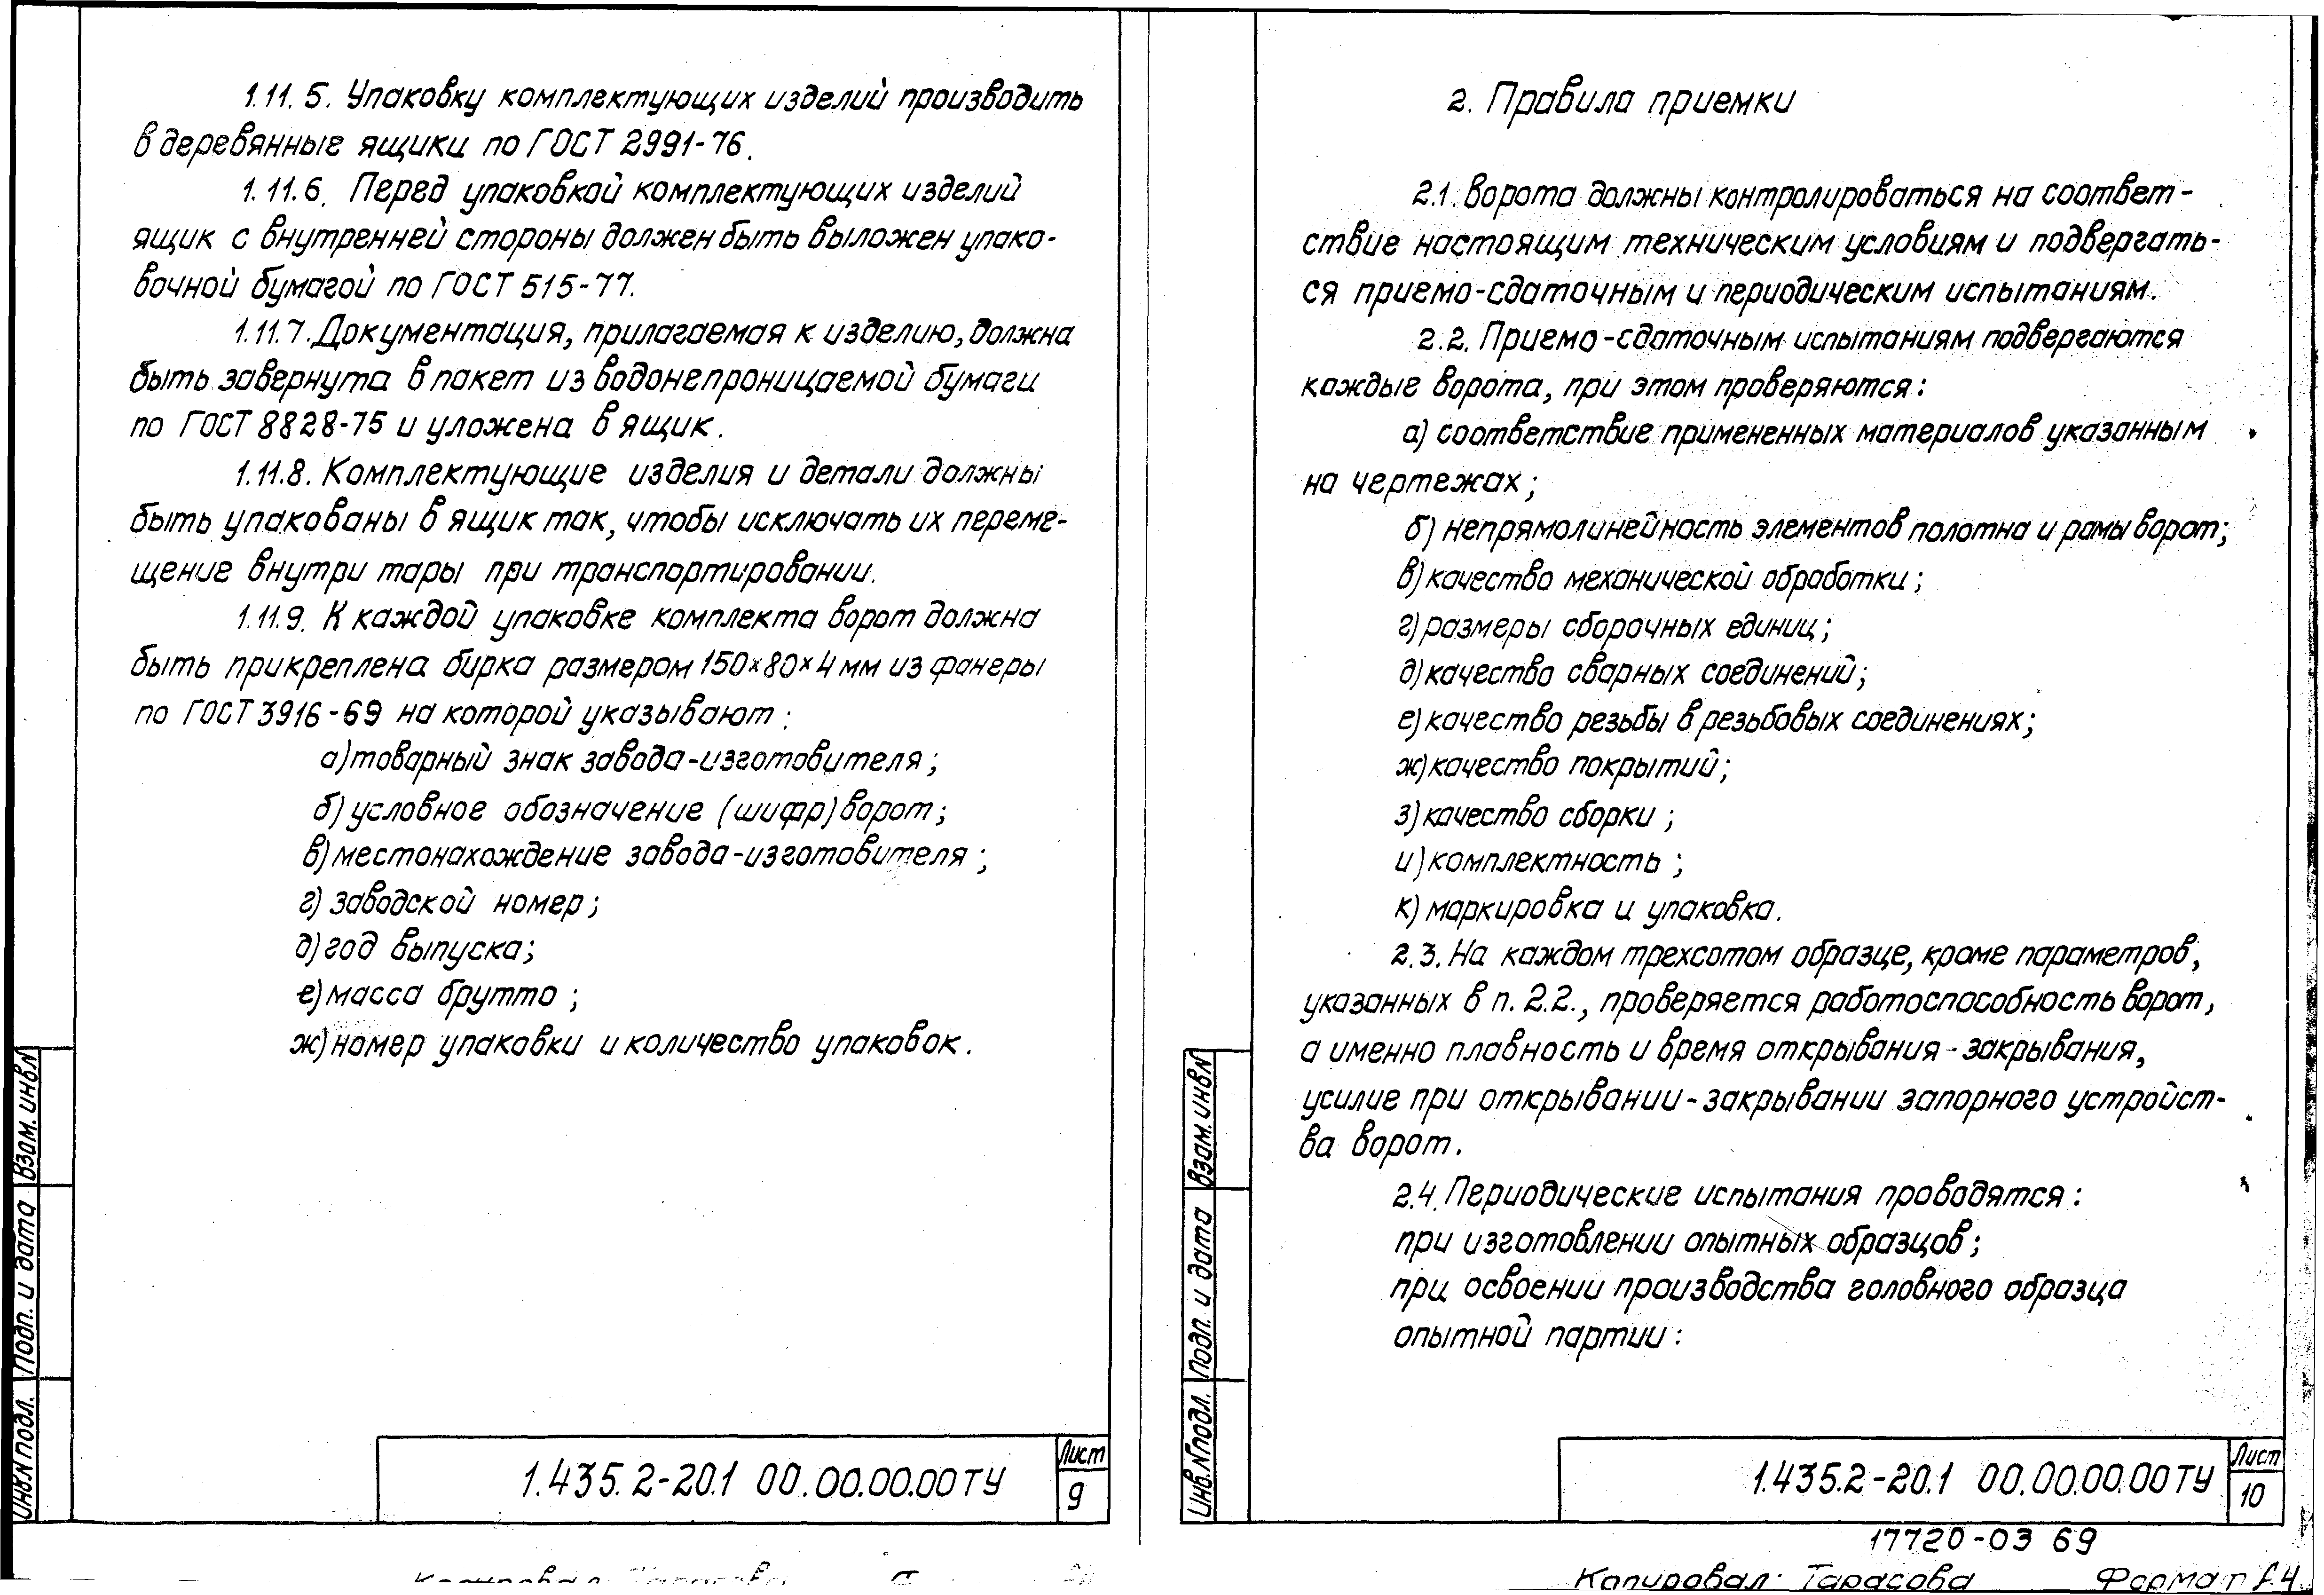 1.11.5. Упаковку комплектующих изделий производить
в деревянные ящики по ГОСТ 2991-76.
1.11.6. Перед упаковкой комплектующих изделий
ящик с внутренней стороны должен быть выложен упако-
вочной бумагой по ГОСТ 515-77.
1.11.7. Документация, прилагаемая к изделию, должна
быть завернута в пакет из водонепроницаемой бумаги
по ГОСТ 8828-75 и уложена в ящик.
1.11.8. Комплектующие изделия и детали должны
быть упакованы в ящик так, чтобы исключать их переме-
щение внутри тары при транспортировании.
1.11.9. К каждой упаковке комплекта ворот должна
быть прикреплена бирка размером 150×80×4 мм из фанеры
по ГОСТ 3916-69 на которой указывают:
а) товарный знак завода-изготовителя;
б) условное обозначение (шифр) ворот;
в) местонахождение завода-изготовителя;
г) заводской номер;
д) год выпуска;
е) масса брутто;
ж) номер упаковки и количество упаковок.
Взам. инв N
Подп. и дата
Инв. N подл.
1.435.2-20.1 00.00.00.00ТУ
Лист
9
2. Правила приемки
2.1. Ворота должны контролироваться на соответ-
ствие настоящим техническим условиям и подвергать-
ся приемо-сдаточным и периодическим испытаниям.
2.2. Приемо-сдаточным испытаниям подвергаются
каждые ворота, при этом проверяются:
а) соответствие примененных материалов указанным
на чертежах;
б) непрямолинейность элементов полотна и рамы ворот;
в) качество механической обработки;
г) размеры сборочных единиц;
д) качество сварных соединений;
е) качество резьбы в резьбовых соединениях;
ж) качество покрытий;
з) качество сборки;
и) комплектность;
к) маркировка и упаковка.
2.3. На каждом трехсотом образце, кроме параметров,
указанных в п. 2.2., проверяется работоспособность ворот,
а именно плавность и время открывания-закрывания,
усилие при открывании-закрывании запорного устройст-
ва ворот.
2.4. Периодические испытания проводятся:
при изготовлении опытных образцов;
при освоении производства головного образца
опытной партии:
Взам. инв N
Подп. и дата
Инв. N подл.
1.435.2-20.1 00.00.00.00ТУ
Лист
10
17720-03 69
Копировал: Тарасова Формат А4